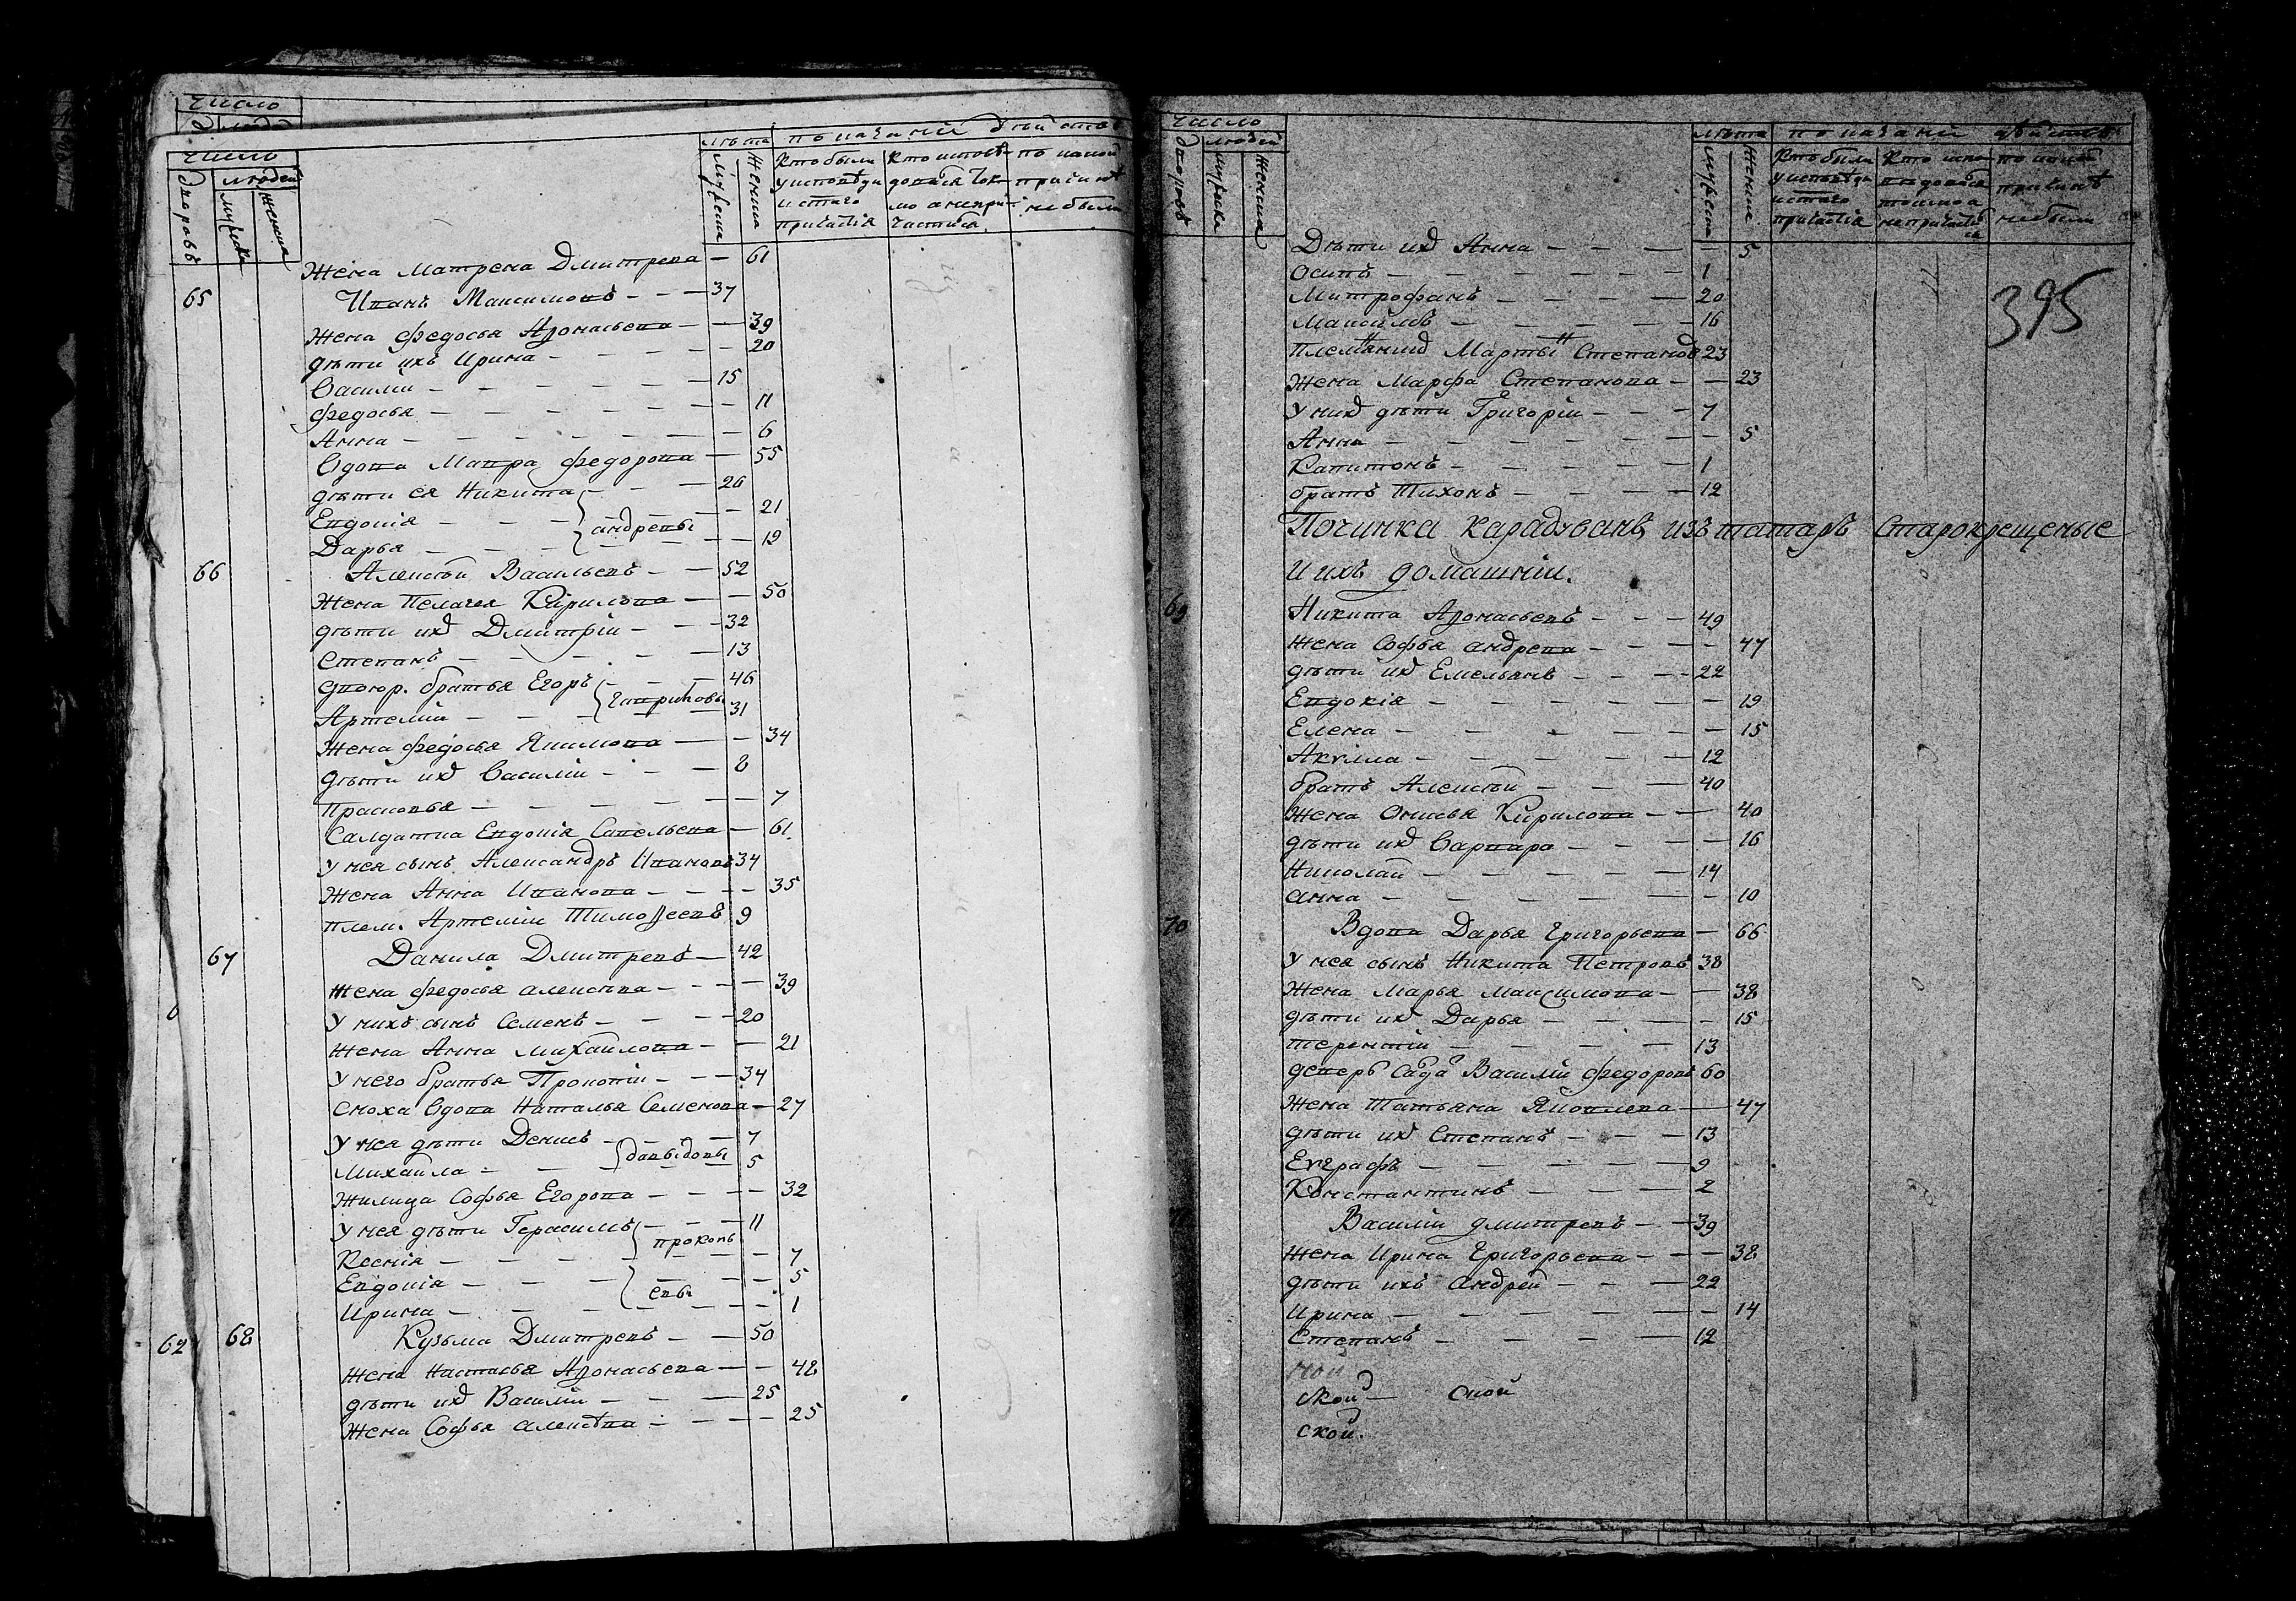 число
число
дворовъ
людей
мужеска
женска
лѣта
мужеска
женска
показаніи дѣйство
Кто были у исповѣди и стаго причастія
Кто исповѣдовался токмо а не причастился
по какой причинѣ не были
Жена Матрена Дмитрева — 61
65 Иванъ Максимовъ — 37
Жена Федосья Аѳонасьева — 39
дѣти ихъ Ирина — 20
Василій — 15
Федосья — 11
Анна — 6
Вдова Мавра Федорова — 55
дѣти ея Никита — 26
Евдокія — 21
андревы
Дарья — 19
66 Алексѣй Васильевъ — 52
Жена Пелагея Кирилова — 50
дѣти ихъ Дмитрій — 32
Степанъ — 13
двоюр. братья Егоръ — 46
гавриловы
Артемій — 31
Жена Федосья Якимова — 34
дѣти ихъ Василій — 8
Прасковья — 7
Салдатка Евдокія Савельева — 61
У нея сынъ Александръ Ивановъ 34
Жена Анна Иванова — 35
плем. Артемій Тимоѳеевъ 9
67 Данила Дмитревъ — 42
Жена Федосья алексѣва — 39
У нихъ сынъ Семенъ — 20
Жена Анна михайлова — 21
У него братья Прокопій — 34
Сноха вдова Наталья Семенова — 27
У нея дѣти Денисъ — 7
давыдовы
Михайла — 5
Жилица Софья Егорова — 32
У нея дѣти Герасимъ — 11
прокопь
Ксенія — 7
Евдокія — 5
евы
Ирина — 1
62 68 Кузьма Дмитревъ — 50
Жена Настасья Аѳонасьева — 48
дѣти ихъ Василій — 25
Жена Софья алексѣва — 25
число
дворовъ
людей
мужеска
женска
лѣта
мужеска
женска
показаніи дѣйство
Кто были у исповѣди и стаго причастія
Кто исповѣдовался токмо а не причастился
по какой причинѣ не были
395
Дѣти ихъ Анна — 5
Осипъ — 1
Митрофанъ — 20
Максимъ — 16
племянникъ Мартынъ Степановъ 23
Жена Марфа Степанова — 23
У нихъ дѣти Григорій — 7
Анна — 5
Капитонъ — 1
братъ Тихонъ — 12
Починка карадуванъ изъ татаръ Старокрещеные
и ихъ домашніи.
69 Никита Аѳонасьевъ — 49
Жена Софья андрева — 47
дѣти ихъ Емельянъ — 22
Евдокія — 19
Елена — 15
Акѵлла — 12
братъ Алексѣй — 40
Жена Онисья Кирилова — 40
дѣти ихъ Варвара — 16
Николай — 14
анна — 10
70 Вдова Дарья григорьева — 66
У нея сынъ Никита Петровъ 38
Жена Марья максимова — 38
дѣти ихъ Дарья — 15
терентій — 13
деверь Василій федоровъ 60
Жена Татьяна Яковлева — 47
дѣти ихъ Степанъ — 13
Евграфъ — 9
Константинъ — 2
Василій дмитревъ — 39
Жена Ирина григорьева — 38
дѣти ихъ андрей — 22
Ирина — 14
Степанъ — 12
ской
ской